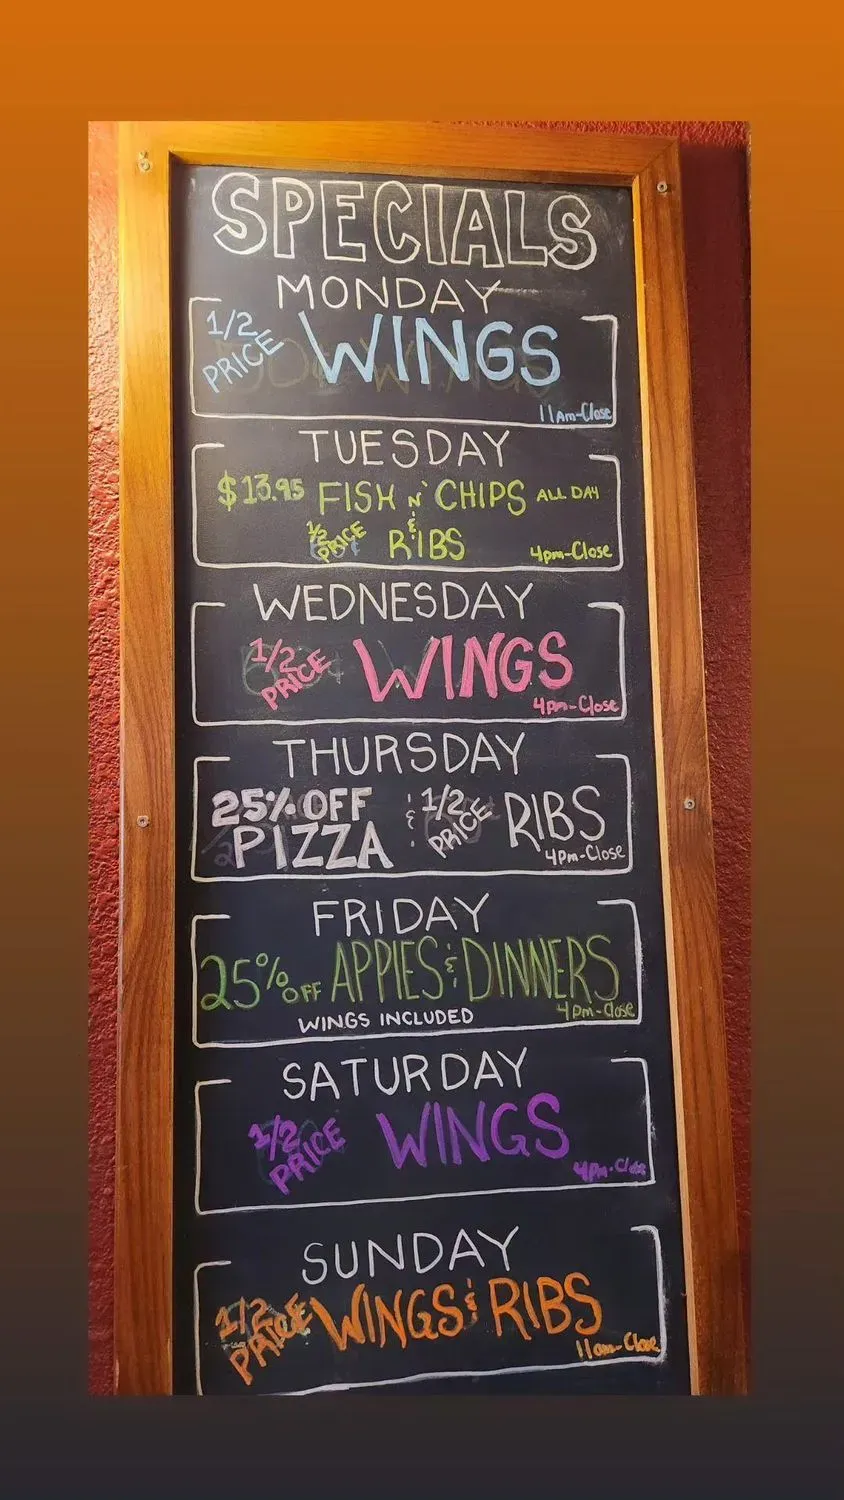 SPECIALS
MONDAY
1/2 PRICE WINGS
11am-Close
TUESDAY
$13.95 FISH N' CHIPS ALL DAY
&
1/2 PRICE RIBS 4pm-Close
WEDNESDAY
1/2 PRICE WINGS
4pm-Close
THURSDAY
25% OFF PIZZA & 1/2 PRICE RIBS
4pm-Close
FRIDAY
25% OFF APPIES & DINNERS
WINGS INCLUDED 4pm-Close
SATURDAY
1/2 PRICE WINGS
4pm-Close
SUNDAY
1/2 PRICE WINGS & RIBS
11am-Close